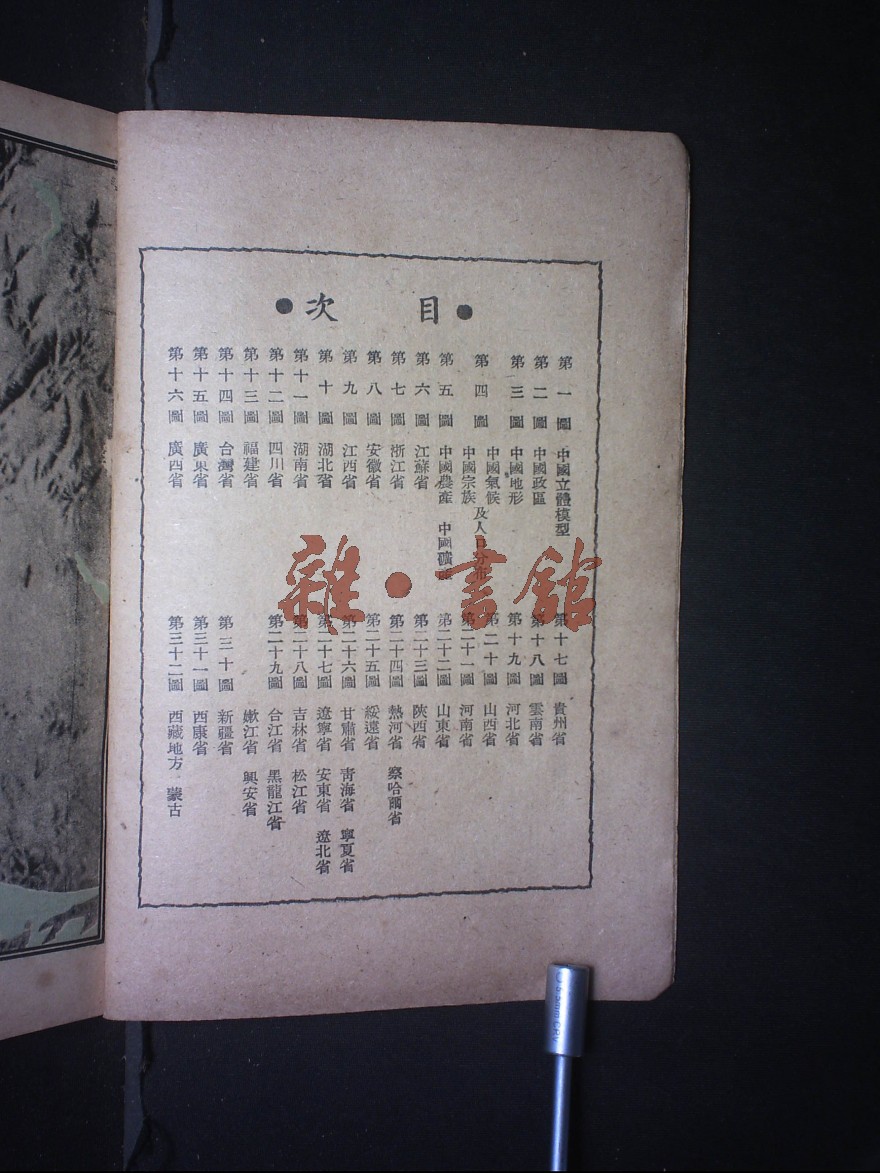 目次
第一圖 中國立體模型
第二圖 中國政區
第三圖 中國地形
中國氣候
第四圖 中國宗族及人口分布
第五圖 中國農產 中國礦產
第六圖 江蘇省
第七圖 浙江省
第八圖 安徽省
第九圖 江西省
第十圖 湖北省
第十一圖 湖南省
第十二圖 四川省
第十三圖 福建省
第十四圖 台灣省
第十五圖 廣東省
第十六圖 廣西省
第十七圖 貴州省
第十八圖 雲南省
第十九圖 河北省
第二十圖 山西省
第二十一圖 河南省
第二十二圖 山東省
第二十三圖 陝西省
第二十四圖 熱河省 察哈爾省
第二十五圖 綏遠省
第二十六圖 甘肅省 青海省 寧夏省
第二十七圖 遼寧省 安東省 遼北省
第二十八圖 吉林省 松江省
第二十九圖 合江省 黑龍江省
嫩江省 興安省
第三十圖 新疆省
第三十一圖 西康省
第三十二圖 西藏地方 蒙古
雜·書館
5.5mm CRV